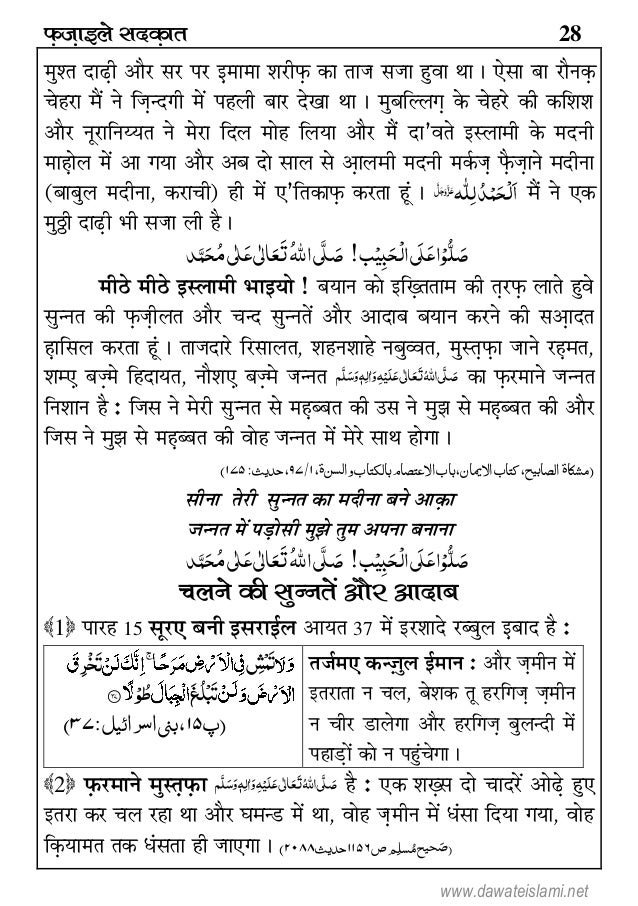 फ़ज़ाइले सदक़ात 28
मुश्त दाढ़ी और सर पर इमामा शरीफ़ का ताज सजा हुवा था । ऐसा बा रौनक़
चेहरा मैं ने ज़िन्दगी में पहली बार देखा था । मुबल्लिग़ के चेहरे की कशिश
और नूरानिय्यत ने मेरा दिल मोह लिया और मैं दा'वते इस्लामी के मदनी
माहोल में आ गया और अब दो साल से आ़लमी मदनी मर्कज़ फ़ैज़ाने मदीना
(बाबुल मदीना, कराची) ही में ए'तिकाफ़ करता हूं । اَلْحَمْدُ لِلّٰه عَزَّوَجَلَّ मैं ने एक
मुठ्ठी दाढ़ी भी सजा ली है ।
صَلُّوْا عَلَى الْحَبِیْب! صَلَّی اللّٰهُ تَعَالٰی عَلٰی مُحَمَّد
मीठे मीठे इस्लामी भाइयो ! बयान को इख़्तिताम की त़रफ़ लाते हुवे
सुन्नत की फ़ज़ीलत और चन्द सुन्नतें और आदाब बयान करने की सआ़दत
ह़ासिल करता हूं । ताजदारे रिसालत, शहनशाहे नबुव्वत, मुस्त़फ़ा जाने रह़मत,
शम्ए बज़्मे हिदायत, नौशए बज़्मे जन्नत صَلَّی اللّٰهُ تَعَالٰی عَلَیْهِ وَاٰلِهٖ وَسَلَّم का फ़रमाने जन्नत
निशान है : जिस ने मेरी सुन्नत से मह़ब्बत की उस ने मुझ से मह़ब्बत की और
जिस ने मुझ से मह़ब्बत की वोह जन्नत में मेरे साथ होगा ।
(مشکاة الصابیح، کتاب الایمان، باب الاعتصام بالکتاب والسنة، ۱/۹۷، حدیث: ۱۷۵)
सीना तेरी सुन्नत का मदीना बने आक़ा
जन्नत में पड़ोसी मुझे तुम अपना बनाना
صَلُّوْا عَلَى الْحَبِیْب! صَلَّی اللّٰهُ تَعَالٰی عَلٰی مُحَمَّد
चलने की सुन्नतें और आदाब
﴾1﴿ पारह 15 सूरए बनी इसराईल आयत 37 में इरशादे रब्बुल इबाद है :
وَلَا تَمْشِ فِی الْاَرْضِ مَرَحًا ۚ اِنَّكَ لَنْ تَخْرِقَ
الْاَرْضَ وَلَنْ تَبْلُغَ الْجِبَالَ طُوْلًا ﴿۳۷﴾
(پ۱۵، بنی اسرائیل: ۳۷)
तर्जमए कन्ज़ुल ईमान : और ज़मीन में
इतराता न चल, बेशक तू हरगिज़ ज़मीन
न चीर डालेगा और हरगिज़ बुलन्दी में
पहाड़ों को न पहुंचेगा ।
﴾2﴿ फ़रमाने मुस्त़फ़ा صَلَّی اللّٰهُ تَعَالٰی عَلَیْهِ وَاٰلِهٖ وَسَلَّم है : एक शख़्स दो चादरें ओढ़े हुए
इतरा कर चल रहा था और घमन्ड में था, वोह ज़मीन में धंसा दिया गया, वोह
क़ियामत तक धंसता ही जाएगा । (صَحیح مُسلِم ص۱۱۵۶ حدیث۲۰۸۸)
www.dawateislami.net